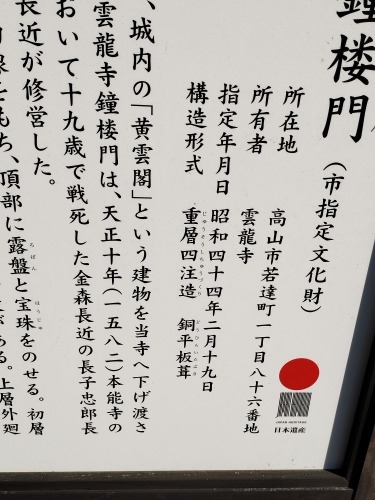 鐘楼門(市指定文化財)
所在地 高山市若達町一丁目八十六番地
所有者 雲龍寺
指定年月日 昭和四十四年二月十九日
構造形式 重層四注造 銅平板葺
じゅうそうしちゅうづくり どうひらいたぶき
、城内の「黄雲閣」という建物を当寺へ下げ渡さ
雲龍寺鐘楼門は、天正十年(一五八二)本能寺の
おいて十九歳で戦死した金森長近の長子忠郎長
長近が修営した。
もち、頂部に露盤と宝珠をのせる。初層
ろばん ほうじゅ
ある。上層外廻
JAPAN HERITAGE
日本遺産